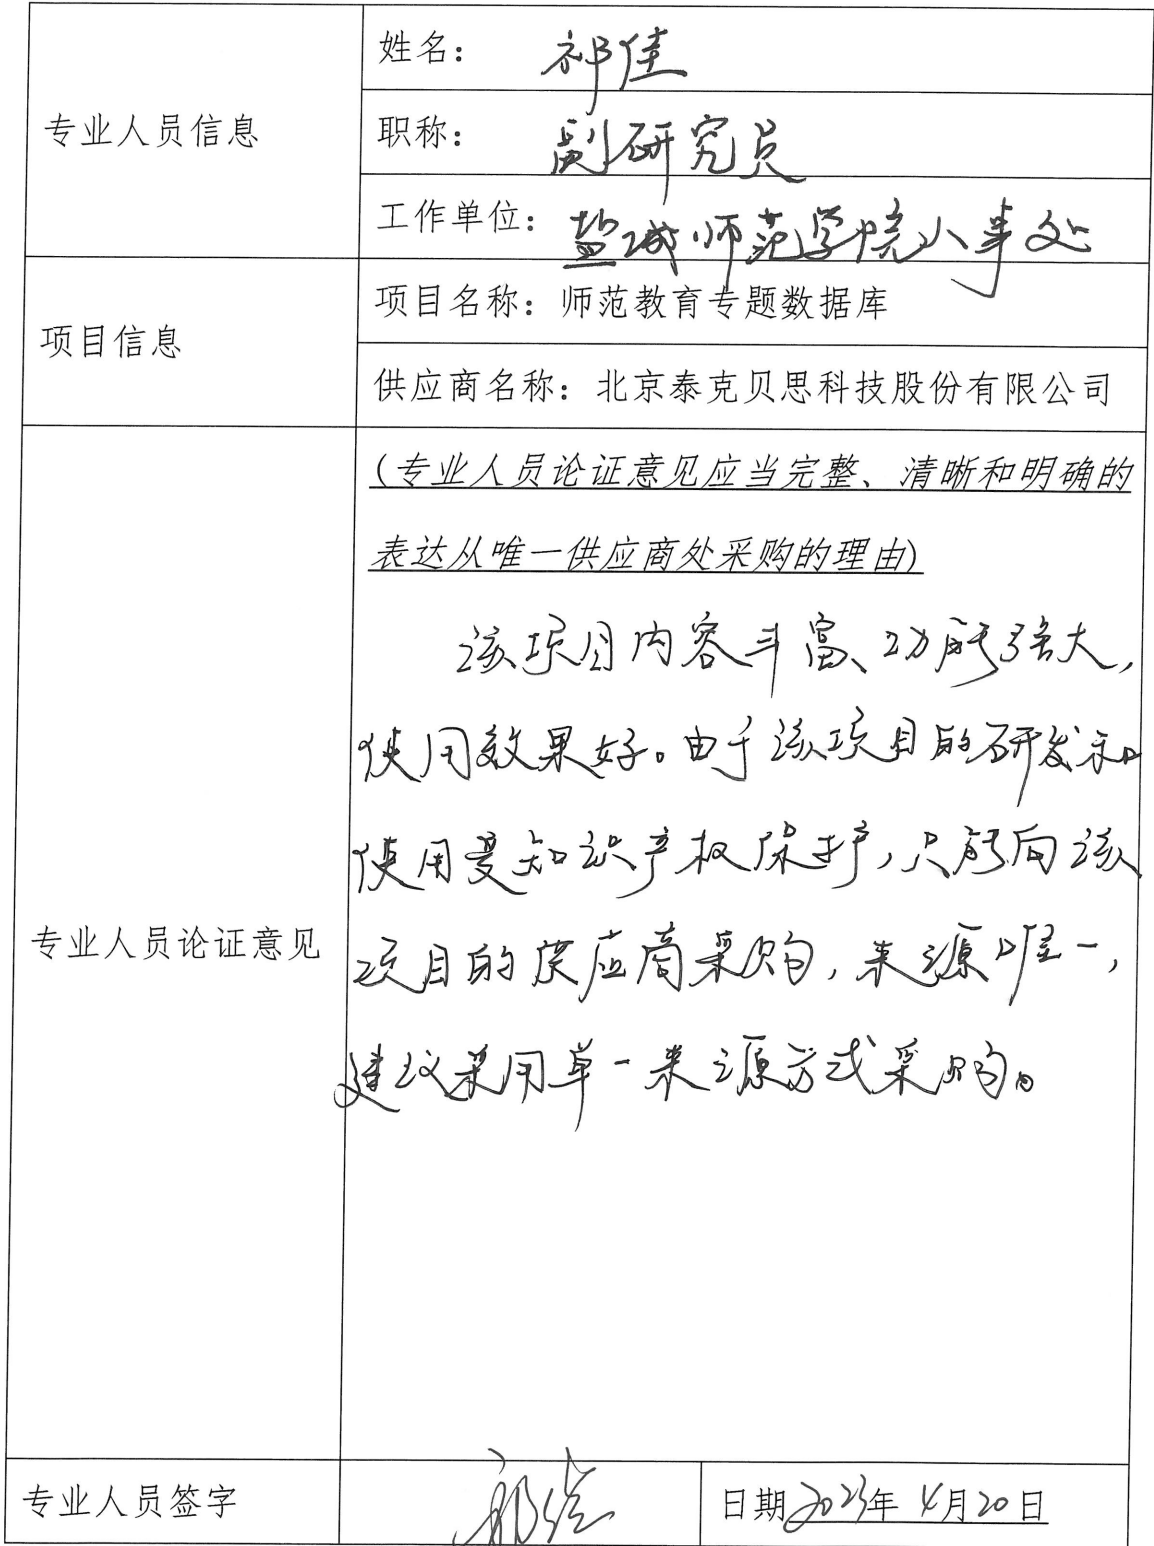 专业人员信息
姓名： 祁佳
职称： 副研究员
工作单位：盐城师范学院人事处
项目信息
项目名称：师范教育专题数据库
供应商名称：北京泰克贝思科技股份有限公司
专业人员论证意见
（专业人员论证意见应当完整、清晰和明确的
表达从唯一供应商处采购的理由）
该项目内容丰富、功能强大，
使用效果好。由于该项目的研发和
使用受知识产权保护，只能向该
项目的供应商采购，来源唯一，
建议采用单一来源方式采购。
专业人员签字
祁佳
日期2023年4月20日